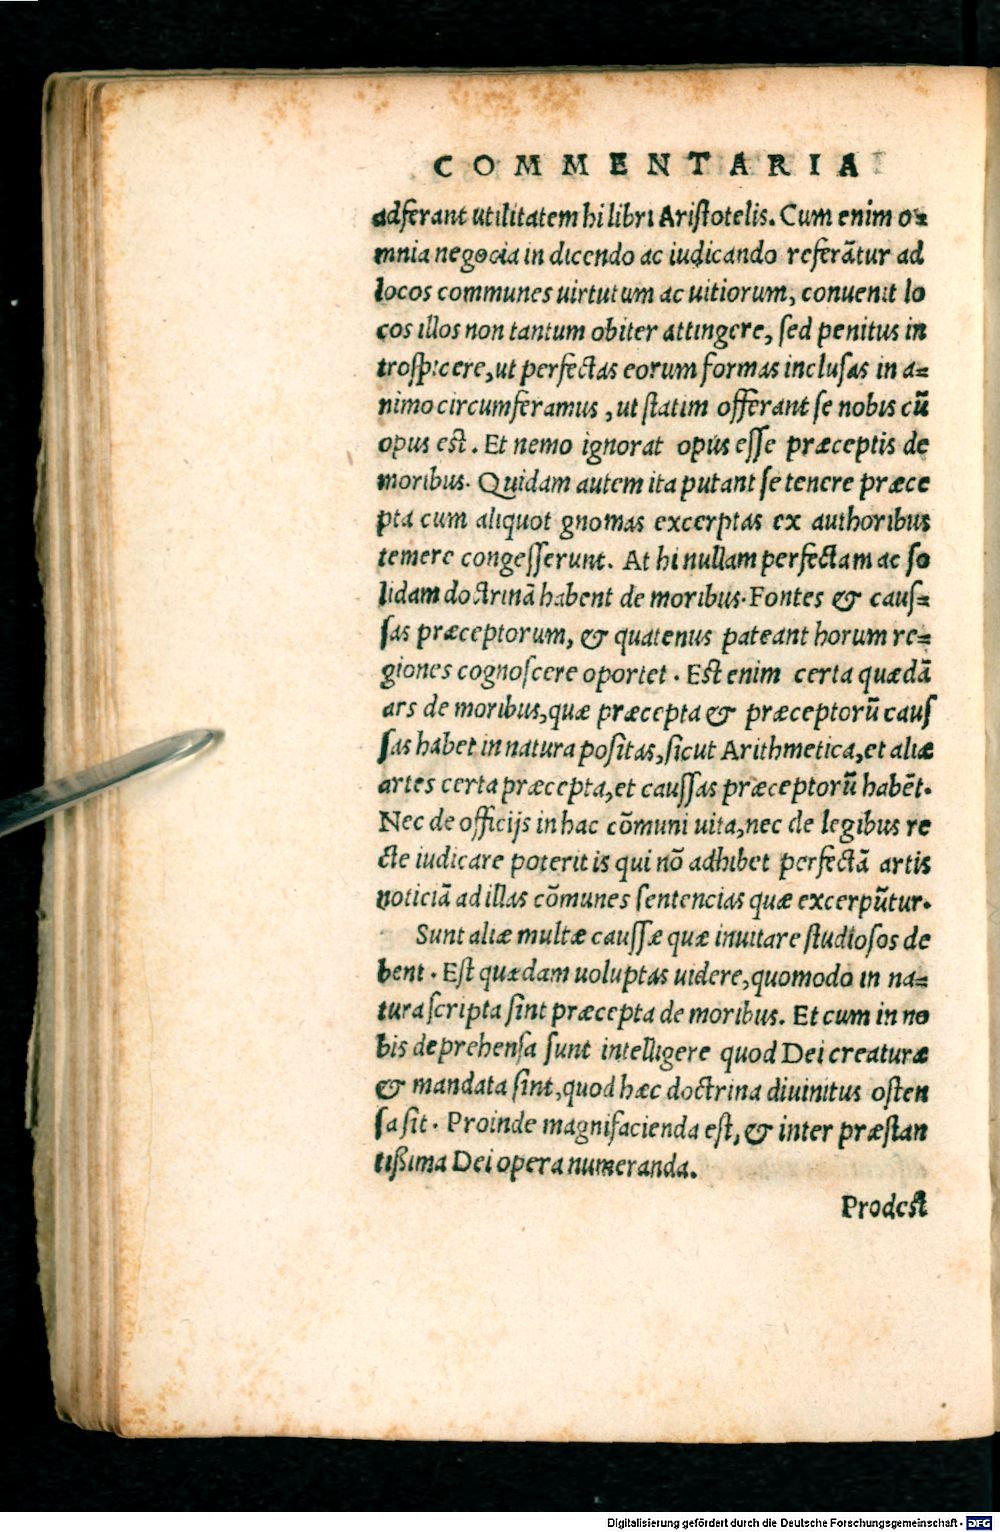 COMMENTARIA
adferant utilitatem hi libri Aristotelis. Cum enim o=
mnia negocia in dicendo ac iudicando referātur ad
locos communes uirtutum ac uitiorum, conuenit lo
cos illos non tantum obiter attingere, sed penitus in
trospicere, ut perfectas eorum formas inclusas in a=
nimo circumferamus, ut statim offerant se nobis cū
opus est. Et nemo ignorat opus esse præceptis de
moribus. Quidam autem ita putant se tenere præce
pta cum aliquot gnomas excerptas ex authoribus
temere congesserunt. At hi nullam perfectam ac so
lidam doctrinā habent de moribus. Fontes & caus=
sas præceptorum, & quatenus pateant horum re=
giones cognoscere oportet. Est enim certa quædā
ars de moribus, quæ præcepta & præceptorū caus
sas habet in natura positas, sicut Arithmetica, et aliæ
artes certa præcepta, et caussas præceptorū habēt.
Nec de officijs in hac cōmuni uita, nec de legibus re
cte iudicare poterit is qui nō adhibet perfectā artis
noticiā ad illas cōmunes sentencias quæ excerpūtur.
Sunt aliæ multæ caussæ quæ inuitare studiosos de
bent. Est quædam uoluptas uidere, quomodo in na=
tura scripta sint præcepta de moribus. Et cum in no
bis deprehensa sunt intelligere quod Dei creaturæ
& mandata sint, quod hæc doctrina diuinitus osten
sa sit. Proinde magnifacienda est, & inter præstan
tißima Dei opera numeranda.
Prodest
Digitalisierung gefördert durch die Deutsche Forschungsgemeinschaft - DFG